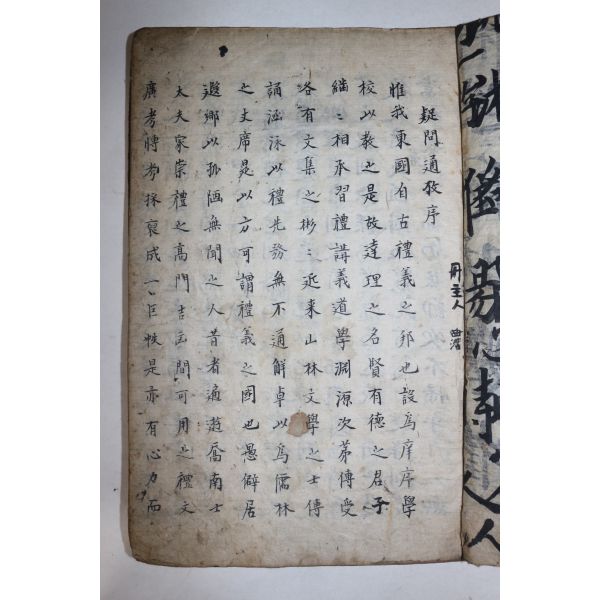 疑問通攷序
惟我東國自古禮義之邦也設為庠序學
校以教之是故達理之名賢有德之君子
繼〻相承習禮講義道學淵源次第傳受
各有文集之彬〻近来山林文學之士傳
誦涵泳以禮先務無不通解卓以為儒林
之丈席是以方可謂禮義之國也愚僻居
遐鄉以孤陋無聞之人昔者遍遊喬南士
大夫家崇禮之高門吉凶間可用之禮文
廣考博考採裒成一巨帙是亦有心力而
冊主人